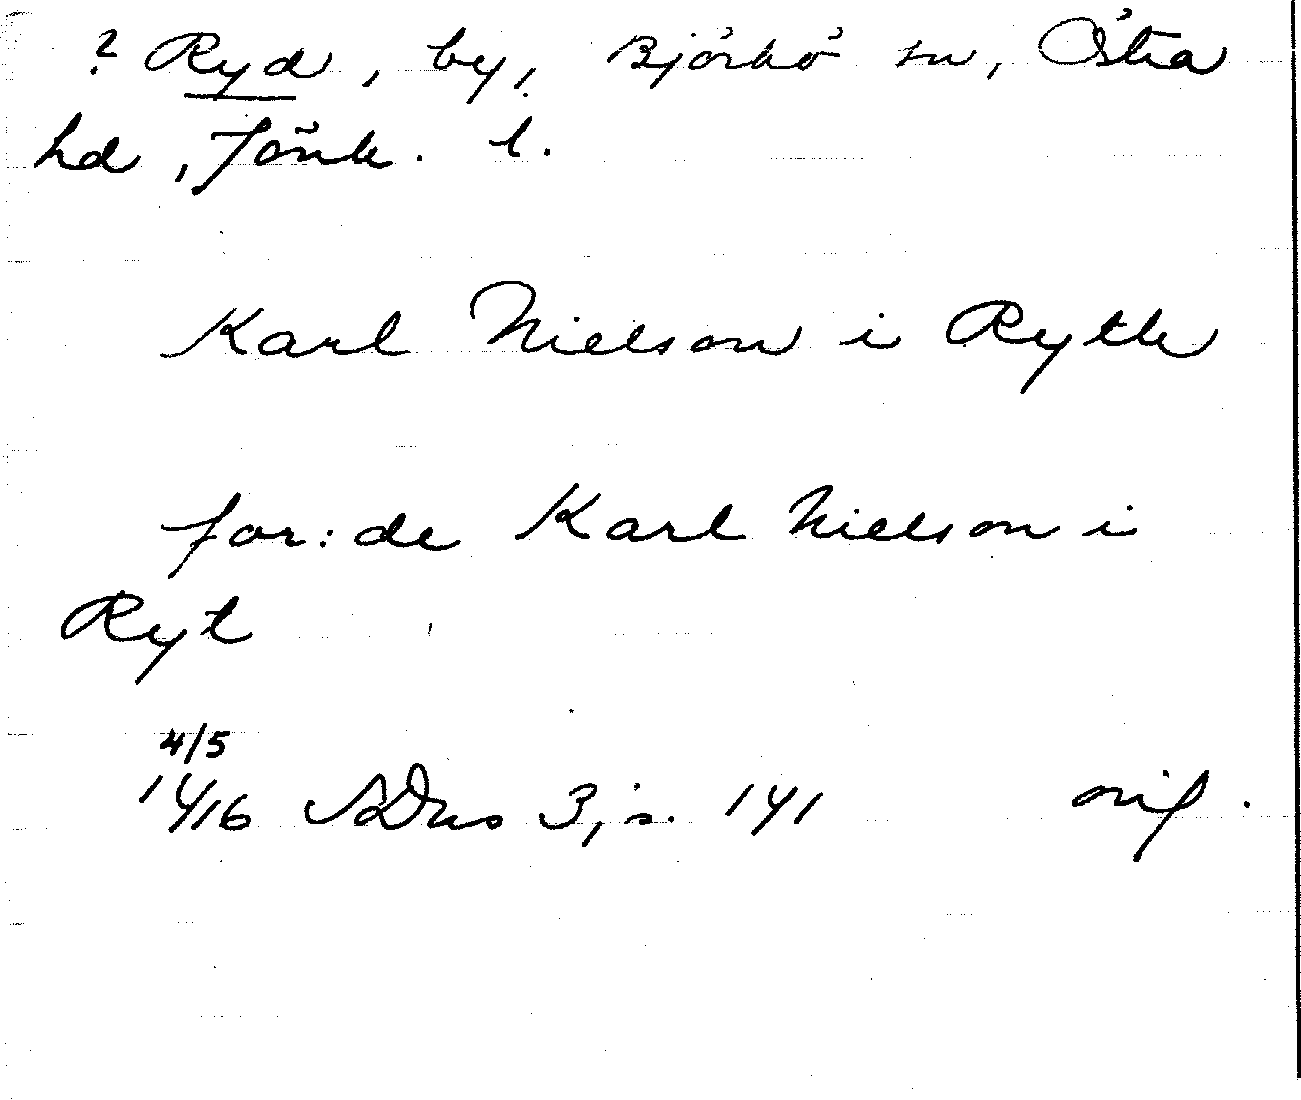 ? Ryd, by, Björkö sn, Östra
hd, Jönk. l.
Karl Nielson i Ryth
for: de Karl Nielson i
Ryt
4/5
1416 SDns 3, s. 141 orig.